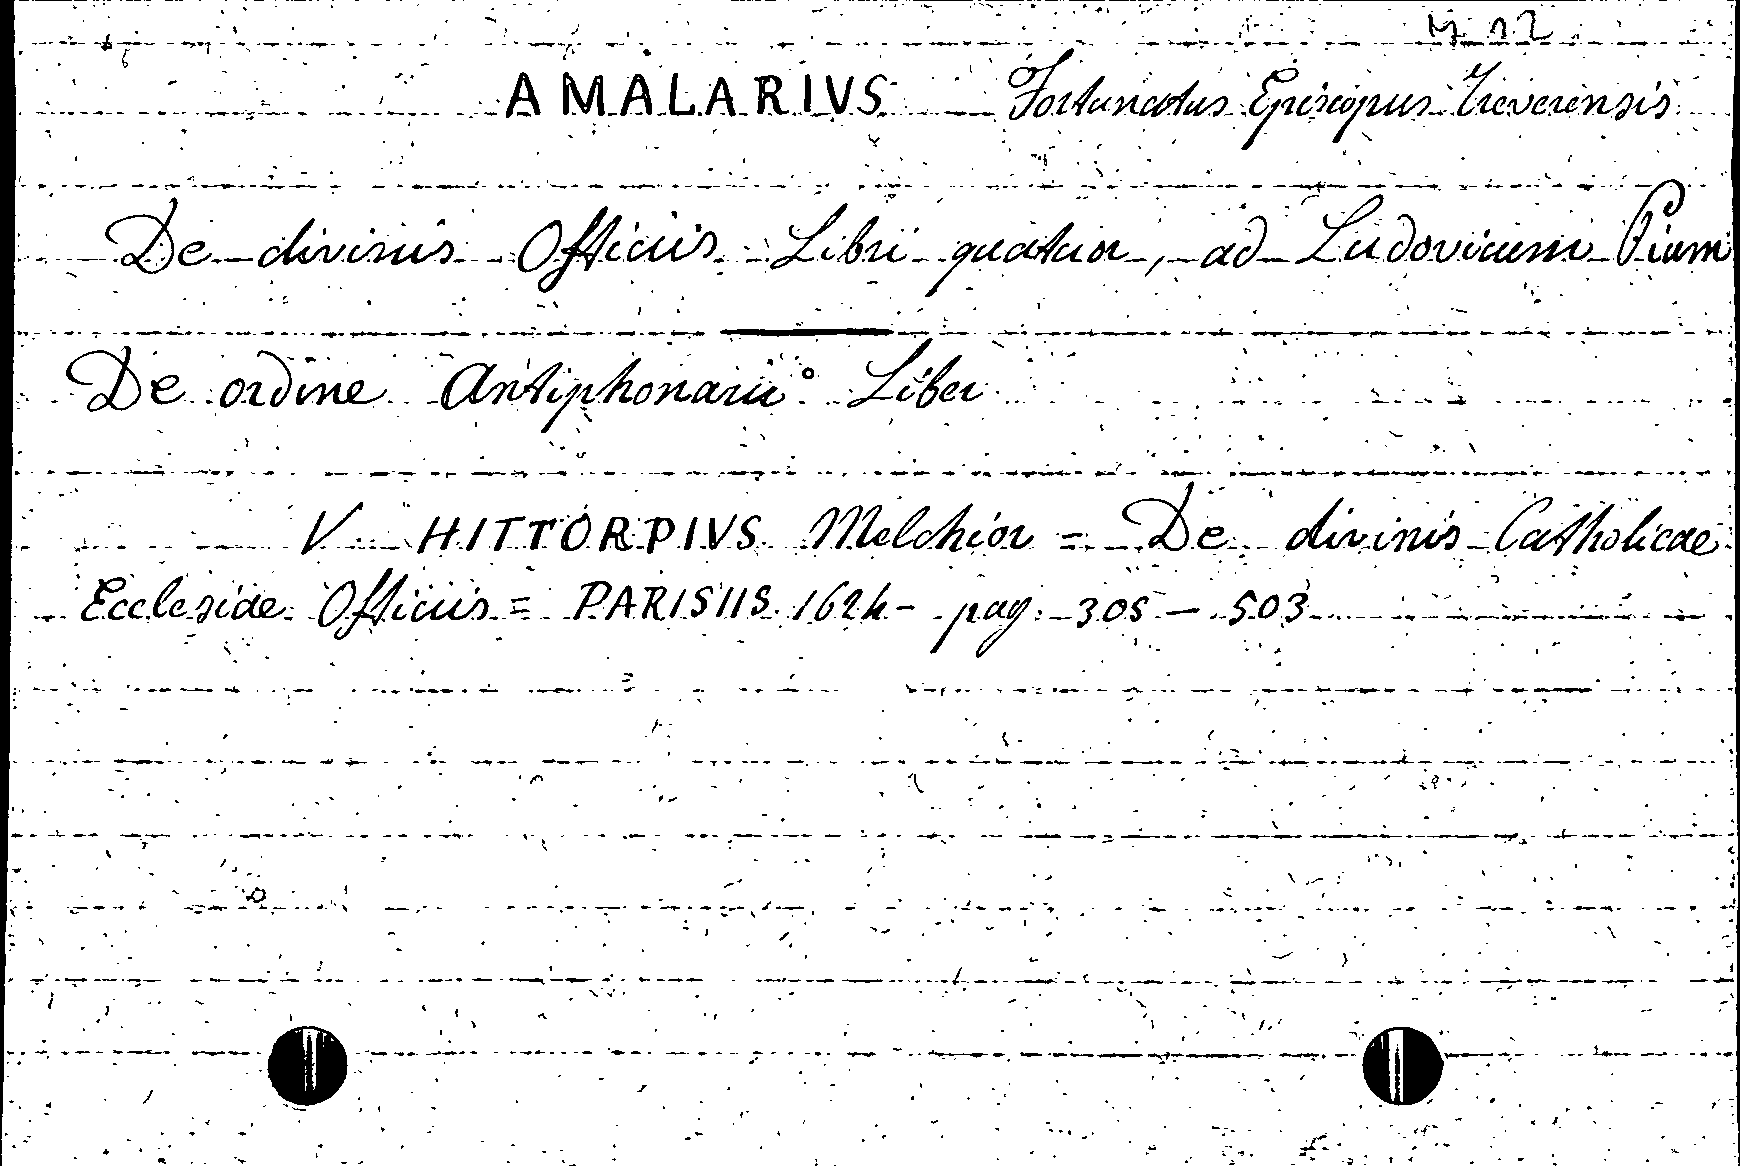 AMALARIVS Fortunatus Episcopus Treverensis
De divinis Officiis Libri quatuor, ad Ludovicum Pium
De ordine Antiphonarii Liber
V HITTORPIVS Melchior = De divinis Catholicae
Ecclesiae Officiis = PARISIIS 1624 - pag. 305 - 503